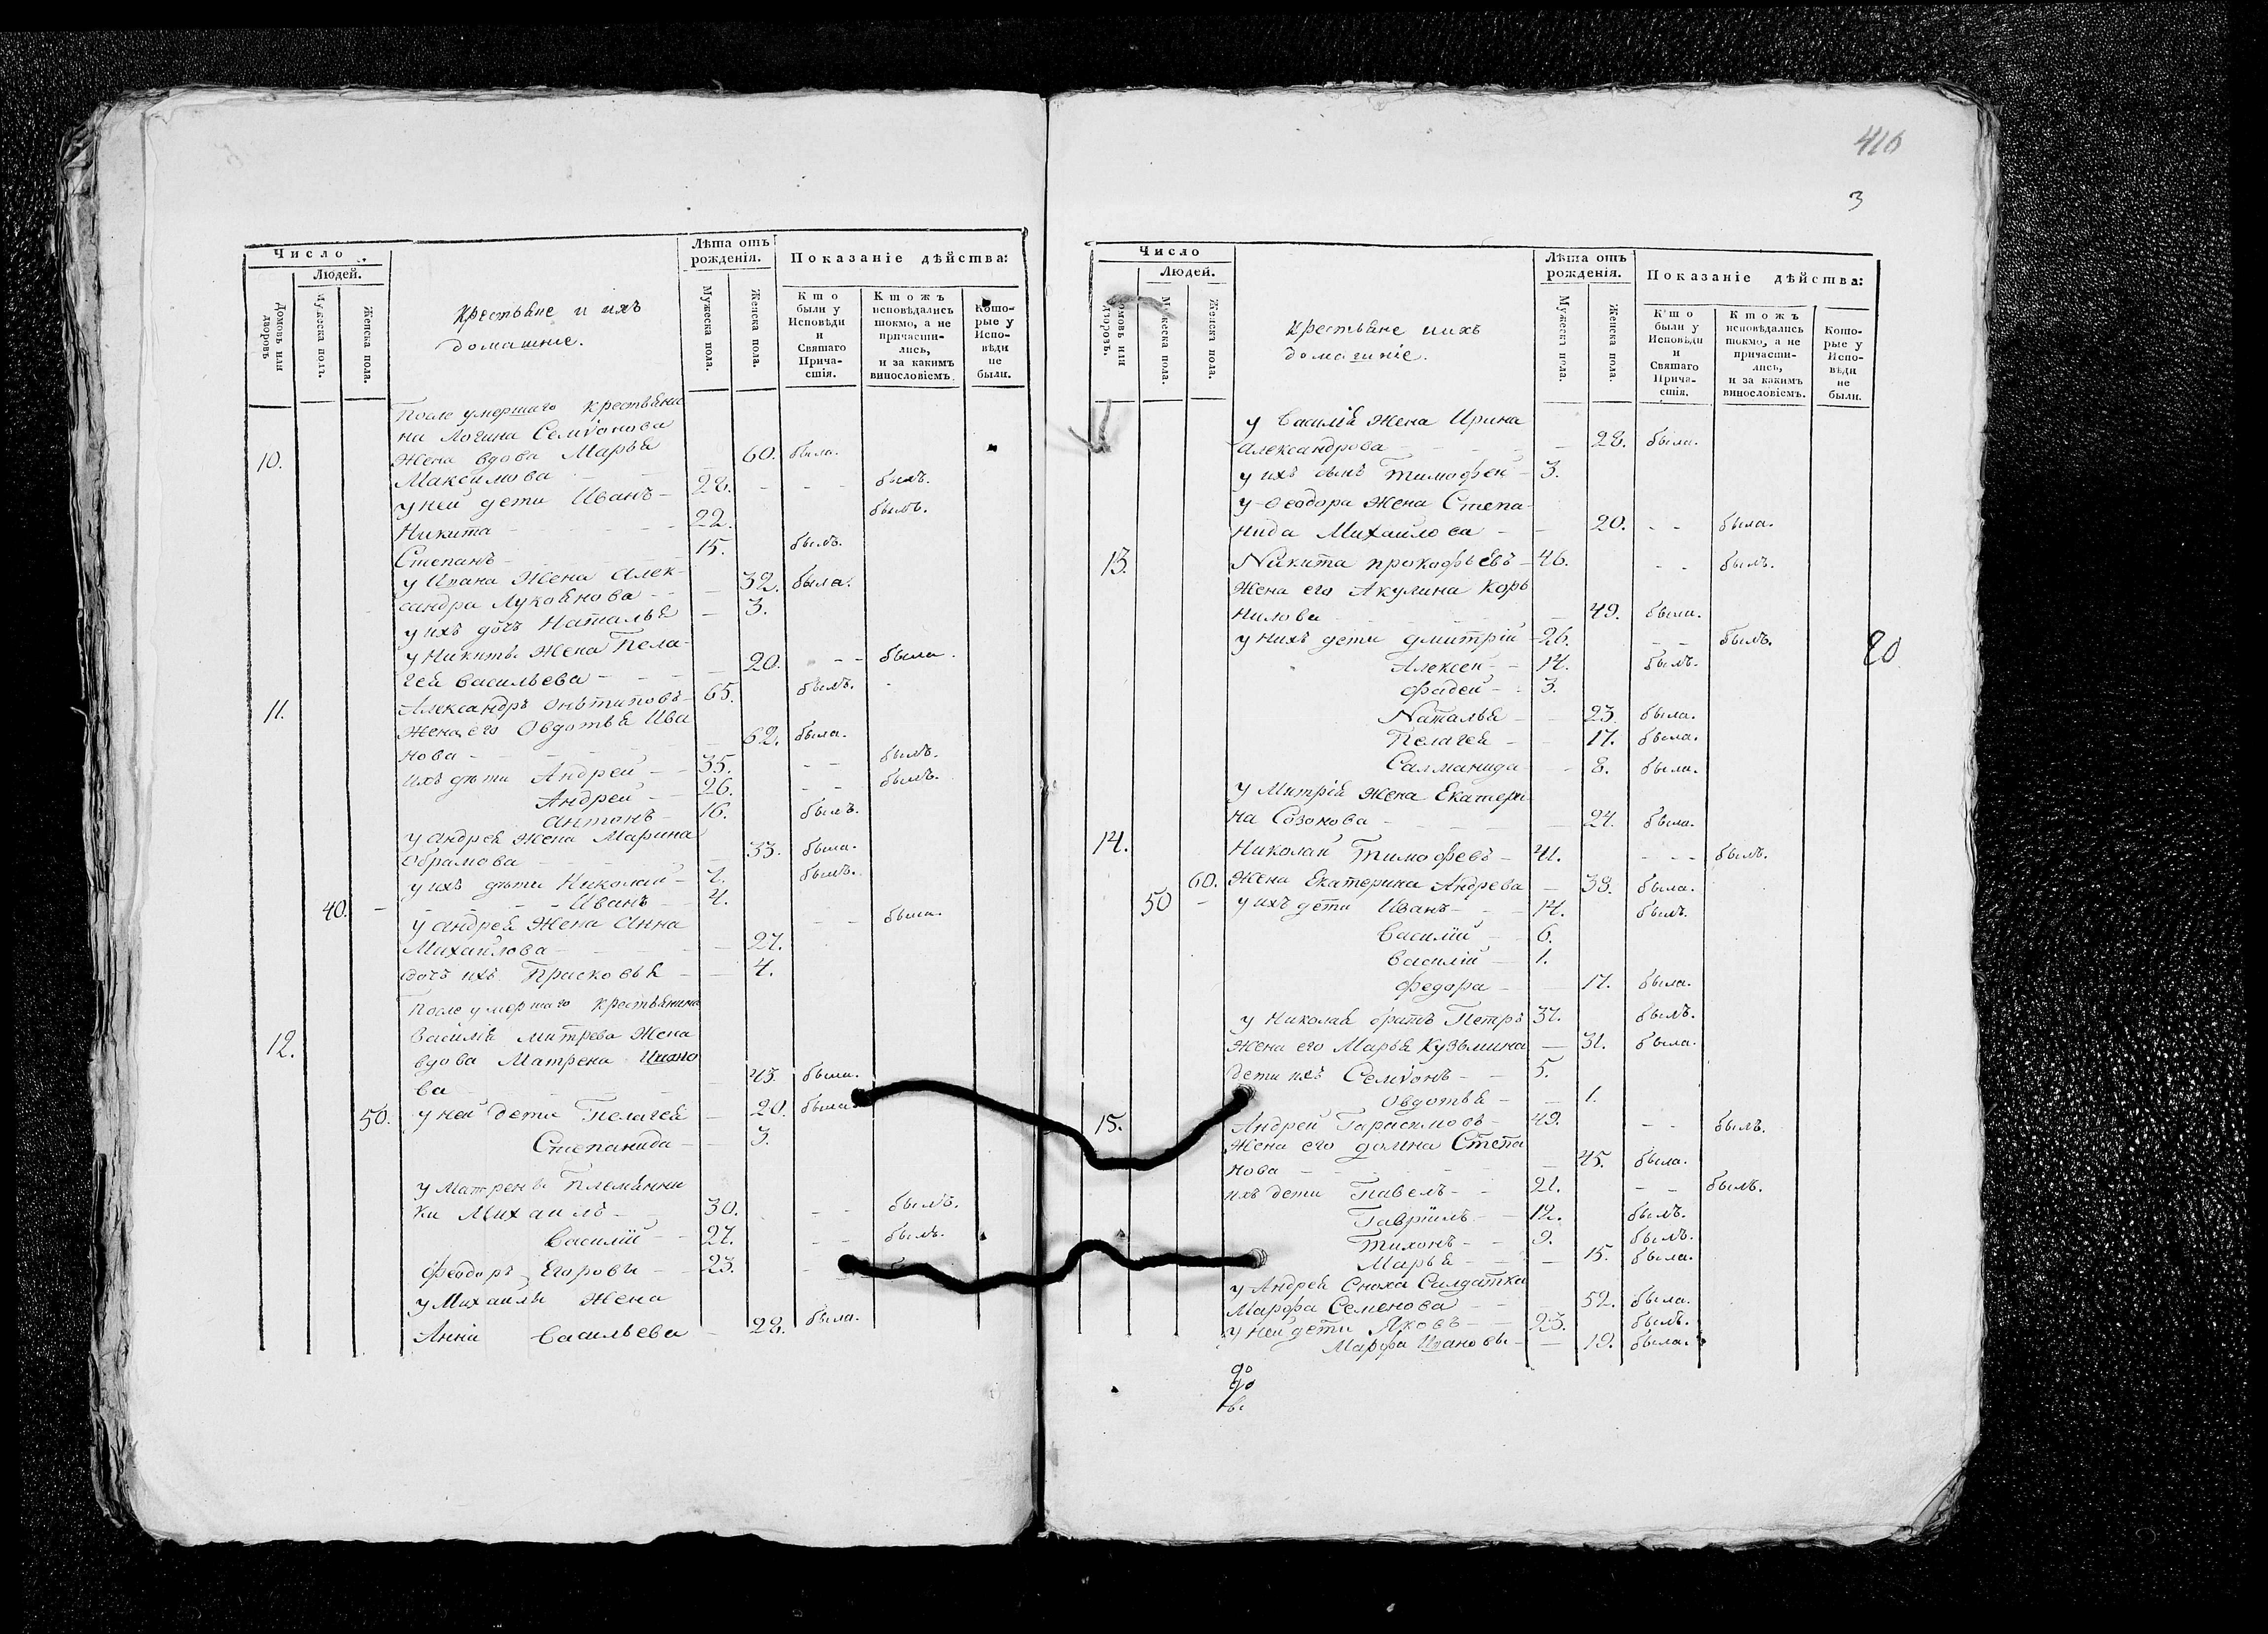 Число
Людей.
Домовъ или дворовъ
Мужеска полъ.
Женска пола.
Крестьяне и ихъ
домашніе.
Лѣта отъ рожденія.
Мужеска пола.
Женска пола.
Показаніе дѣйства:
Кто были у Исповѣди и Святаго Прича-стія.
Ктожъ исповѣдались токмо, а не причасти-лись, и за какимъ винословіемъ.
Кото-рые у Испо-вѣди не были.
После умершаго крестьяни
на Логина Семіонова
10. жена вдова Марья 60. была.
Максимова
у ней дети Иванъ 28. былъ.
Никита 22. былъ.
Степанъ 15. былъ.
у Ивана жена Алек-
сандра Лукоянова 32. была.
у ихъ дочъ Наталья 3.
у Никиты жена Пела-
гея Васильева 20. была.
11. Александръ 65. былъ.
Жена его Овдотья Ива
нова 62. была.
ихъ дѣти Андрей 35. былъ.
Андрей 26. былъ.
Антонъ 16. былъ.
у Андрея жена Марина
Обрамова 33. была.
у ихъ дѣти Николай 7. былъ.
40. Иванъ 4.
у Андрея жена Анна была.
Михайлова 27.
дочъ ихъ Прасковья 4.
После умершаго крестьянина
12. Василія Митрева Жена
вдова Матрена Ивано
ва 43. была.
50. у ней дети Пелагея 20. была.
Степанида 3.
у Матрены Племянни
ки Михаилъ 30. былъ.
Василій 27. былъ.
Феодоръ Егоровы 23.
у Михаилы жена
Анна Васильева 28. была.
410
3
Число
Людей.
Домовъ или дворовъ.
Мужеска пола.
Женска пола.
Крестьяне и ихъ
домашніе.
Лѣта отъ рожденія.
Мужеска пола.
Женска пола.
Показаніе дѣйства:
Кто были у Исповѣди и Святаго Прича-стія.
Ктожъ исповѣдались токмо, а не причасти-лись, и за какимъ винословіемъ.
Кото-рые у Испо-вѣди не были.
у Василія жена Ирина
Александрова 28. была.
у ихъ сынъ Тимофей 3.
у Ѳеодора жена Степа-
нида Михайлова 20. была.
13. Никита Прокофьевъ 46. былъ.
Жена его Акулина Кор
нилова 49. была.
у нихъ дети Дмитрій 26. былъ.
20
Алексей 14. былъ.
Фадей 3.
Наталья 23. была.
Пелагея 17. была.
Салманида 8. была.
у Митрія жена Екатери
на Созонова 24. была.
14. Николай Тимофеевъ 41. былъ.
60. Жена Екатерина Андрева 38. была.
50 у ихъ дети Иванъ 14. былъ.
Василій 6.
Василій 1.
Федора 17. была.
у Николая братъ Петръ 37. былъ.
Жена его Марья Кузьмина 31. была.
дети ихъ Семіонъ 5.
Овдотья 1.
15. Андрей Гарасимовъ 49. былъ.
Жена его Домна Степа
нова 45. была.
ихъ дети Павелъ 21. былъ.
Гаврiилъ 12. былъ.
Тихонъ 9. былъ.
Марья 15. была.
у Андрея Сноха Салдатка
Марфа Семенова 52. была.
у ней дети Яковъ 23. былъ.
Марфа Ивановы 19. была.